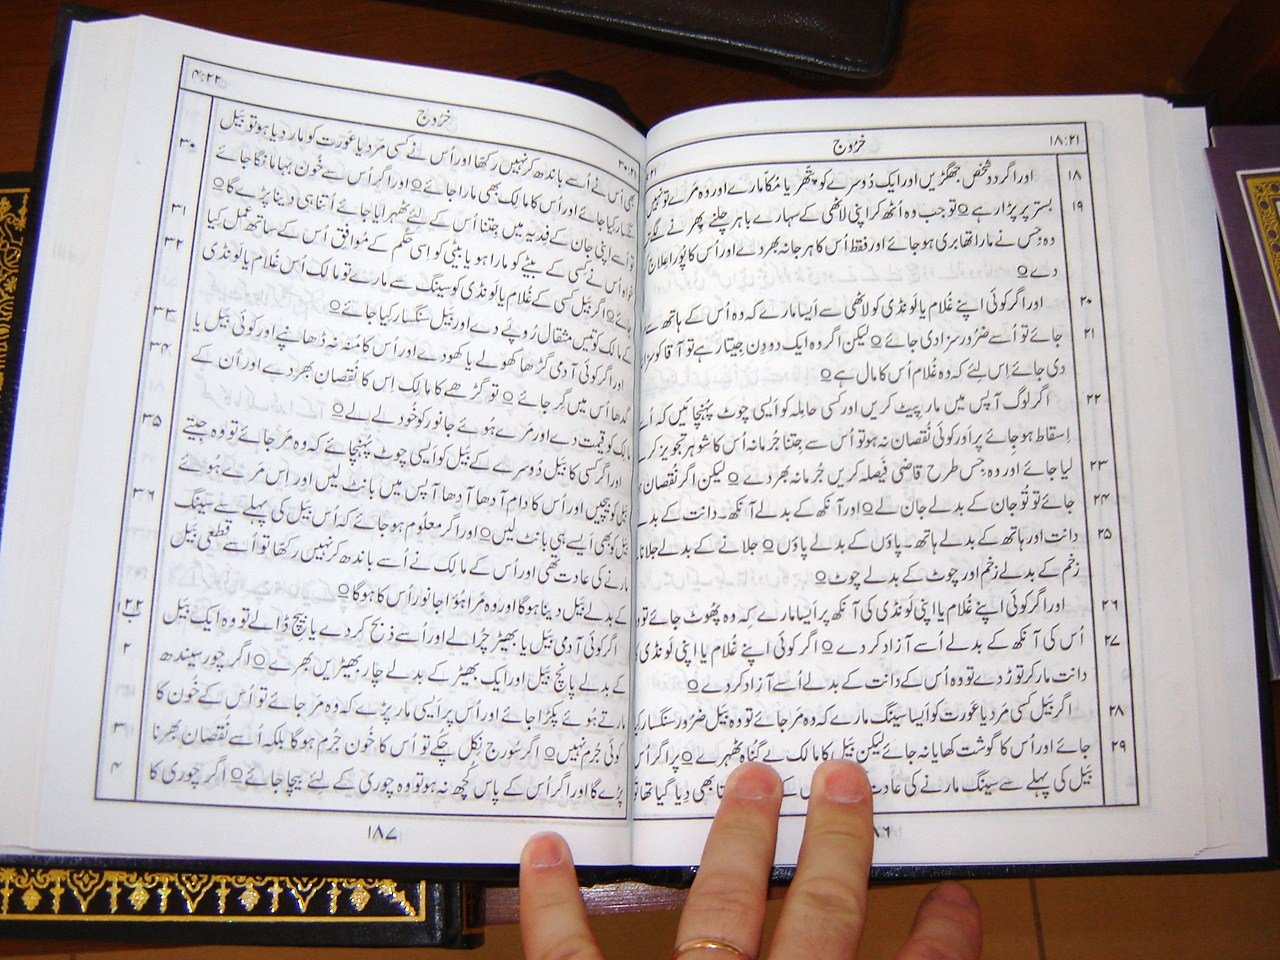 ۱۸:۲۱
خرُوج
۱۸ اور اگر دو شخص جھگڑیں اور ایک دُوسرے کو پتّھر یا مُکّا مارے اور وہ مَرے تو نہیں
۱۹ بستر پر پڑا رہے۝ تو جب وہ اُٹھ کر اپنی لاٹھی کے سہارے باہر چلنے پھرنے لگے
وہ جس نے مارا تھا بری ہو جائے اور فقط اُس کا ہرجانہ بھر دے اور اُس کا پُورا علاج
دے۝
۲۰ اور اگر کوئی اپنے غُلام یا لَونڈی کو لاٹھی سے اَیسا مارے کہ وہ اُس کے ہاتھ سے
۲۱ جائے تو اُسے ضرُور سزا دی جائے۝ لیکن اگر وہ ایک دو دِن جِیتا رہے تو آقا کو سزا
دی جائے اِس لِئے کہ وہ غُلام اُس کا مال ہے۝
۲۲ اگر لوگ آپس میں مار پیٹ کریں اور کسی حامِلہ کو اَیسی چوٹ پُہنچائیں کہ اُسے
اِسقاط ہو جائے پر اَور کوئی نُقصان نہ ہو تو اُس سے جِتنا جُرمانہ اُس کا شَوہر تجوِیز کرے
۲۳ لیا جائے اور وہ جِس طرح قاضی فَیصلہ کریں جُرمانہ بھر دے۝ لیکن اگر نُقصان
۲۴ جائے تو تُو جان کے بدلے جان لے۝ اور آنکھ کے بدلے آنکھ۔ دانت کے بدلے
۲۵ دانت اور ہاتھ کے بدلے ہاتھ۔ پاؤں کے بدلے پاؤں۝ جلانے کے بدلے جلانا
زخم کے بدلے زخم اور چوٹ کے بدلے چوٹ۝
۲۶ اور اگر کوئی اپنے غُلام یا اپنی لَونڈی کی آنکھ پر اَیسا مارے کہ وہ پُھوٹ جائے تو وہ
۲۷ اُس کی آنکھ کے بدلے اُسے آزاد کر دے۝ اگر کوئی اپنے غُلام یا اپنی لَونڈی
دانت مار کر توڑ دے تو وہ اُس کے دانت کے بدلے اُسے آزاد کر دے۝
۲۸ اگر بَیل کسی مَرد یا عَورت کو اَیسا سِینگ مارے کہ وہ مَر جائے تو وہ بَیل ضرُور سنگسار کیا
۲۹ جائے اور اُس کا گوشت کھایا نہ جائے لیکن بَیل کا مالِک بے گُناہ ٹھہرے۝ پر اگر اُس
بَیل کی پہلے سے سِینگ مارنے کی عادت
۲۲:۴
خرُوج
۳۰:۲۱
بھی اُس نے اُسے باندھ کر نہیں رکھا اور اُس نے کسی مَرد یا عَورت کو مار دیا ہو تو بَیل
۳۰ سنگسار کیا جائے اور اُس کا مالِک بھی مارا جائے۝ اور اگر اُس سے خُون بہا مانگا جائے
تو اُسے اپنی جان کے فِدیہ میں جِتنا اُس کے لِئے ٹھہرایا جائے اُتنا ہی دینا پڑے گا۝
۳۱ خواہ اُس نے کسی کے بیٹے کو مارا ہو یا بیٹی کو اِسی حُکم کے مُوافِق اُس کے ساتھ عمل کیا
۳۲ جائے۝ اگر بَیل کسی کے غُلام یا لَونڈی کو سِینگ سے مارے تو مالِک اُس غُلام یا لَونڈی
کے مالِک کو تِیس مِثقال رُوپے دے اور بَیل سنگسار کیا جائے۝
۳۳ اور اگر کوئی آدمی گڑھا کھولے یا کھودے اور اُس کا مُنہ نہ ڈھانپے اور کوئی بَیل یا
۳۴ گدھا اُس میں گِر جائے۝ تو گڑھے کا مالِک اُس کا نُقصان بھر دے اور اُن کے
مالِک کو قِیمت دے اور مَرے ہُوئے جانور کو خُود لے لے۝
۳۵ اور اگر کسی کا بَیل دُوسرے کے بَیل کو اَیسی چوٹ پُہنچائے کہ وہ مَر جائے تو وہ جِیتے
بَیل کو بیچیں اور اُس کا دام آدھا آدھا آپس میں بانٹ لیں اور اِس مَرے ہُوئے
۳۶ بَیل کو بھی اَیسے ہی بانٹ لیں۝ اور اگر معلُوم ہو جائے کہ اُس بَیل کی پہلے سے سِینگ
مارنے کی عادت تھی اور اُس کے مالِک نے اُسے باندھ کر نہیں رکھا تو اُسے قطعی بَیل
کے بدلے بَیل دینا ہو گا اور وہ مَرا ہُؤا جانور اُس کا ہو گا۝
۲۲ اگر کوئی آدمی بَیل یا بھیڑ چُرا لے اور اُسے ذبح کر دے یا بیچ ڈالے تو وہ ایک بَیل
۲ کے بدلے پانچ بَیل اور ایک بھیڑ کے بدلے چار بھیڑیں بھرے۝ اگر چور سیندھ
مارتے ہُوئے پکڑا جائے اور اُس پر اَیسی مار پڑے کہ وہ مَر جائے تو اُس کے خُون کا
۳ کوئی جُرم نہیں۝ اگر سُورج نِکل چُکے تو اُس کا خُون جُرم ہو گا بلکہ اُسے نُقصان بھرنا
۴ پڑے گا اور اگر اُس کے پاس کُچھ نہ ہو تو وہ چوری کے لِئے بیچا جائے۝ اگر چوری کا
۱۸۷